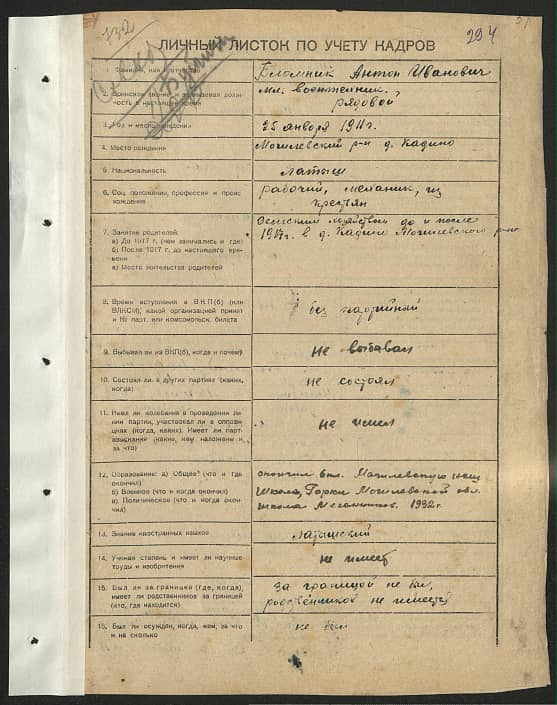 732
294
ЛИЧНЫЙ ЛИСТОК ПО УЧЕТУ КАДРОВ
1. Фамилия, имя и отчество
Бломник Антон Иванович
2. Воинское звание и занимаемая должность в настоящее время
мл. воентехник.
рядовой
3. Год и месяц рождения
25 января 1911г.
4. Место рождения
Могилевский р-н д. Кадино
5. Национальность
латыш
6. Соц. положение, профессия и происхождение
рабочий, механик, из
крестьян
7. Занятие родителей:
а) До 1917 г. (чем занимались и где)
б) После 1917 г. до настоящего времени
в) Место жительства родителей
сельским хозяйством до и после
1917г. в д. Кадино Могилевского р-на
8. Время вступления в ВКП(б) (или
ВЛКСМ), какой организацией принят
и № парт. или комсомольск. билета
без партийный
9. Выбывал ли из ВКП(б), когда и почему
не выбывал
10. Состоял ли в других партиях (каких,
когда)
не состоял
11. Имел ли колебания в проведении линии партии, участвовал ли в оппозициях (когда, каких). Имеет ли партвзыскания (какие, кем наложены и
за что)
не имел
12. Образование: а) Общее (что и где
окончил)
б) Военное (что и когда окончил)
в) Политическое (что и когда окончил)
окончил 6 кл. Могилевскую
школа, Горки Могилевской обл.
школа Механиков. 1932г.
13. Знание иностранных языков
Латышский
14. Ученая степень и имеет ли научные
труды и изобретения
не имеет
15. Был ли за границей (где, когда),
имеет ли родственников за границей
(кто, где находится)
За границой не был,
родственников не имеет
16. Был ли осужден, когда, кем, за что
и на сколько
не был